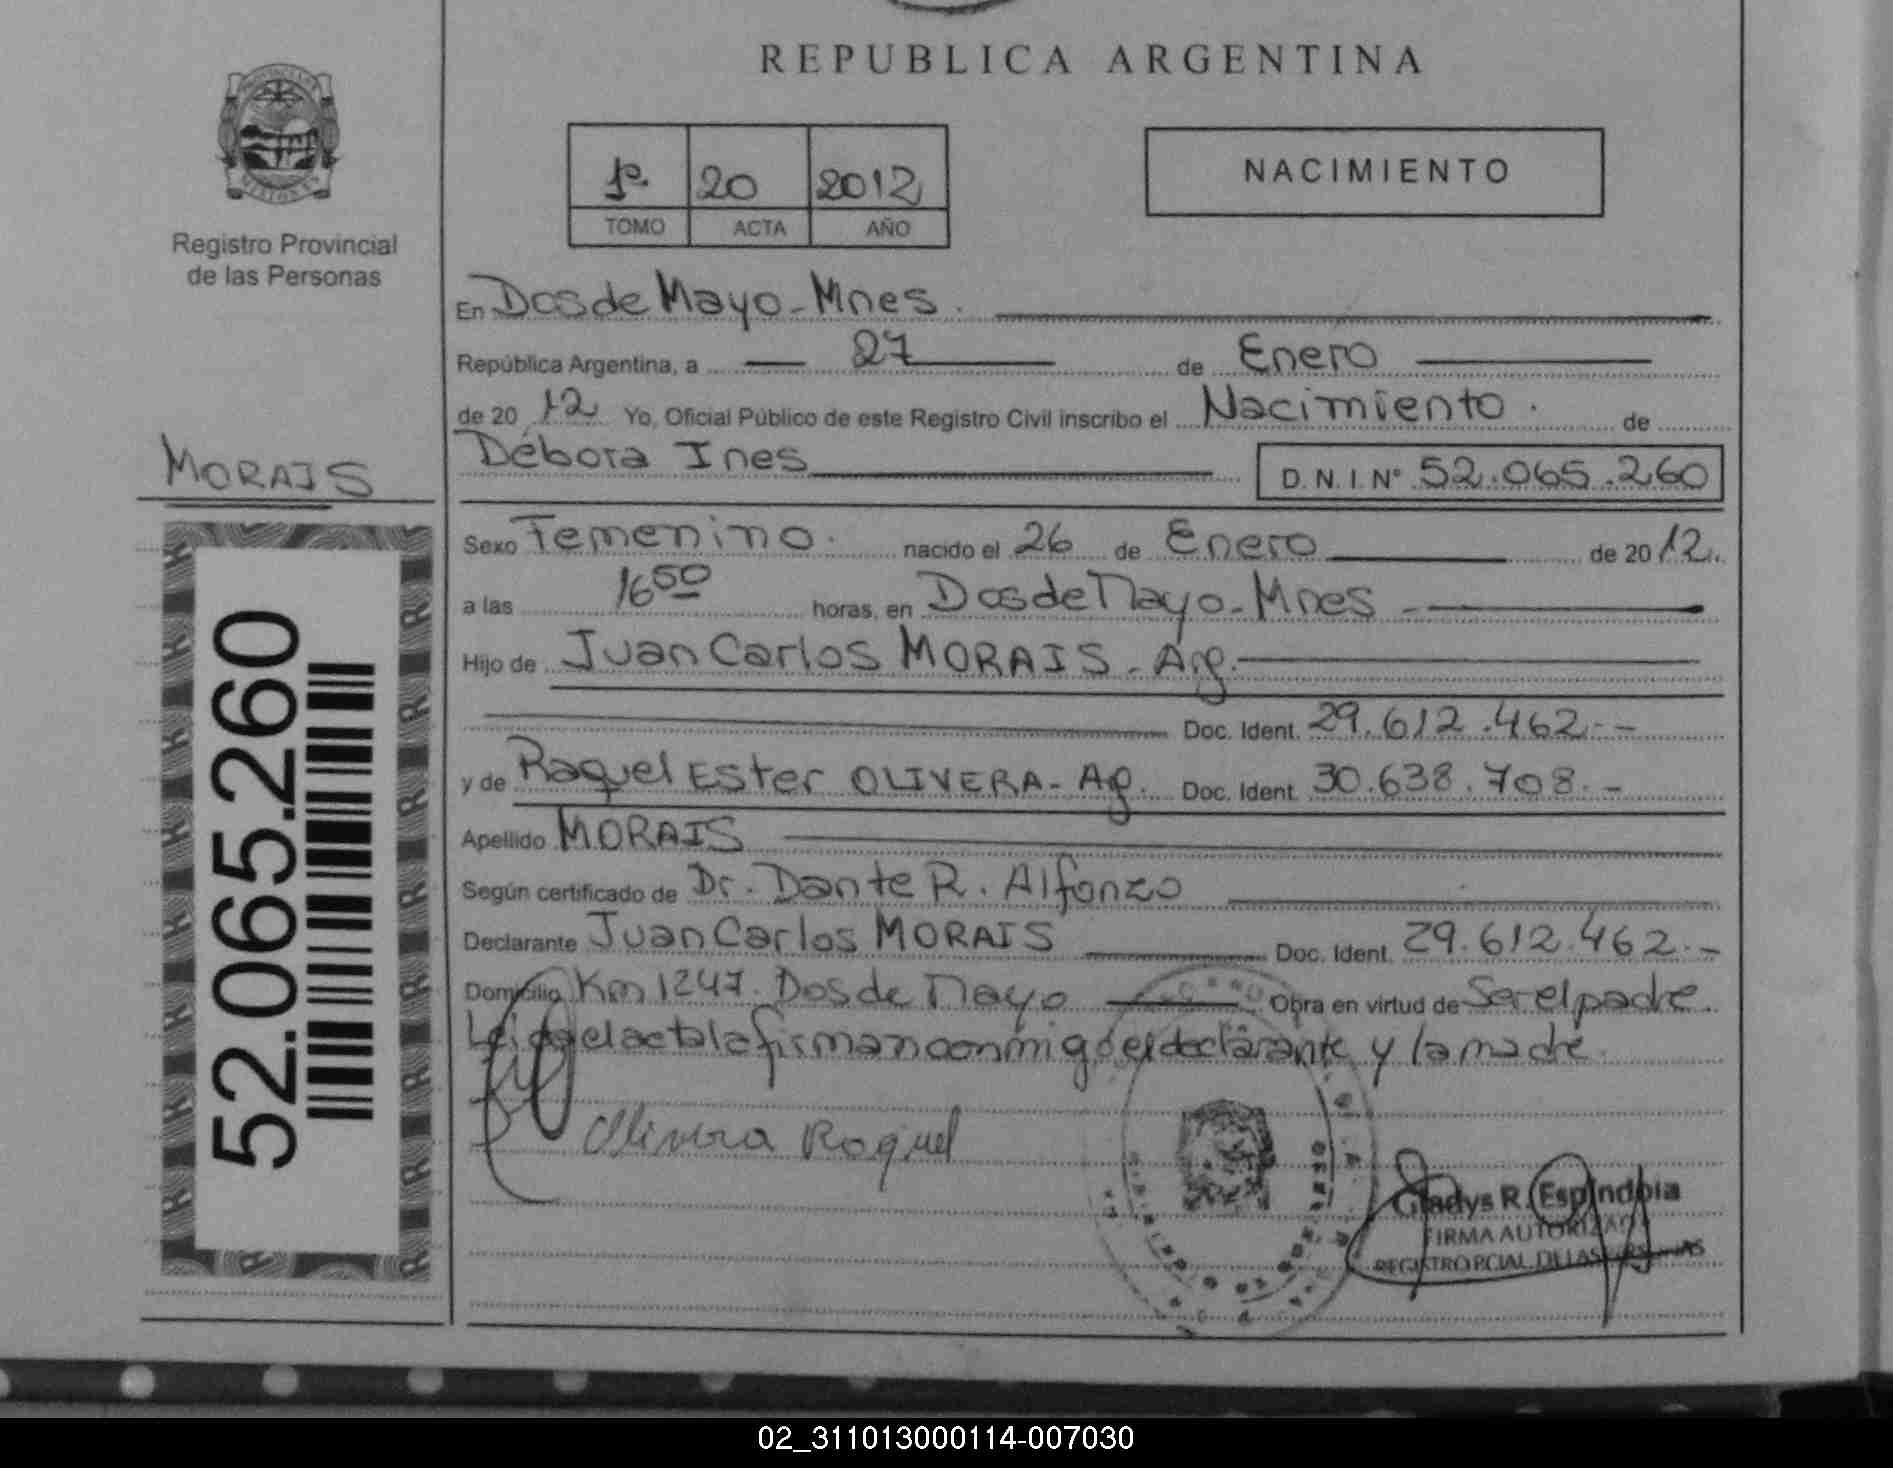 REPUBLICA ARGENTINA
Registro Provincial
de las Personas
1º 20 2012
TOMO ACTA AÑO
NACIMIENTO
En Dos de Mayo - Mnes.
República Argentina, a 27 de Enero
de 20 12 Yo, Oficial Público de este Registro Civil inscribo el Nacimiento. de
Débora Ines D. N. I. Nº 52.065.260
MORAIS
52.065.260
Sexo Femenino. nacido el 26 de Enero de 20 12.
a las 16 50 horas, en Dos de Mayo - Mnes -
Hijo de Juan Carlos MORAIS - Arg.
Doc. Ident. 29.612.462.-
y de Raquel Ester OLIVERA - Ag. Doc. Ident. 30.638.708.-
Apellido MORAIS
Según certificado de Dr. Dante R. Alfonzo
Declarante Juan Carlos MORAIS Doc. Ident. 29.612.462.-
Domicilio Km 1247. Dos de Mayo Obra en virtud de Ser el padre.
Leida el acta la firman conmigo el declarante y la madre.
Olivera Raquel
Gladys R. Espindola
FIRMA AUTORIZADA
REGISTRO PCIAL. DE LAS PERSONAS
02_311013000114-007030